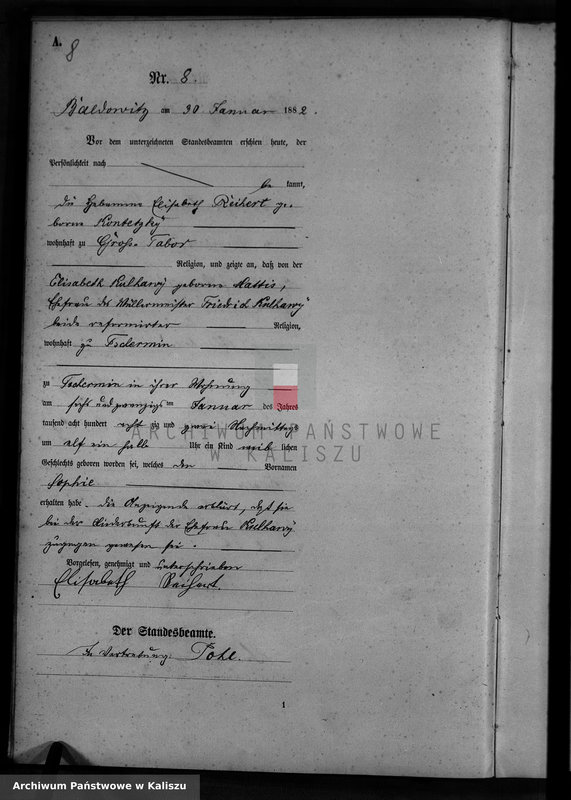 A.
8
Nr. 8.
Baldowitz am 30 Januar 1882.
Vor dem unterzeichneten Standesbeamten erschien heute, der
Persönlichkeit nach
be kannt,
die Hebamme Elisabeth Reihert ge-
borne Kontetzky
wohnhaft zu Gross-Tabor
Religion, und zeigte an, daß von der
Elisabeth Kulhawy geborne Mattis,
Ehefrau des Müllermeister Friedrich Kulhawy
beide reformirter Religion,
wohnhaft zu Tschermin
zu Tschermin in ihrer Wohnung
am sechs und zwanzigs ten Januar des Jahres
tausend acht hundert acht zig und zwei Nachmittags
um elf ein halb Uhr ein Kind weib lichen
Geschlechts geboren worden sei, welches den Vornamen
Sophie
erhalten habe. Die Anzeigende erklärt, daß sie
bei der Niederkunft der Ehefrau Kulhawy
zugegen gewesen sei.
Vorgelesen, genehmigt und unterschrieben
Elisabeth Reihert.
Der Standesbeamte.
In Vertretung Pohl.
1
ARCHIWUM PAŃSTWOWE
W KALISZU
Archiwum Państwowe w Kaliszu